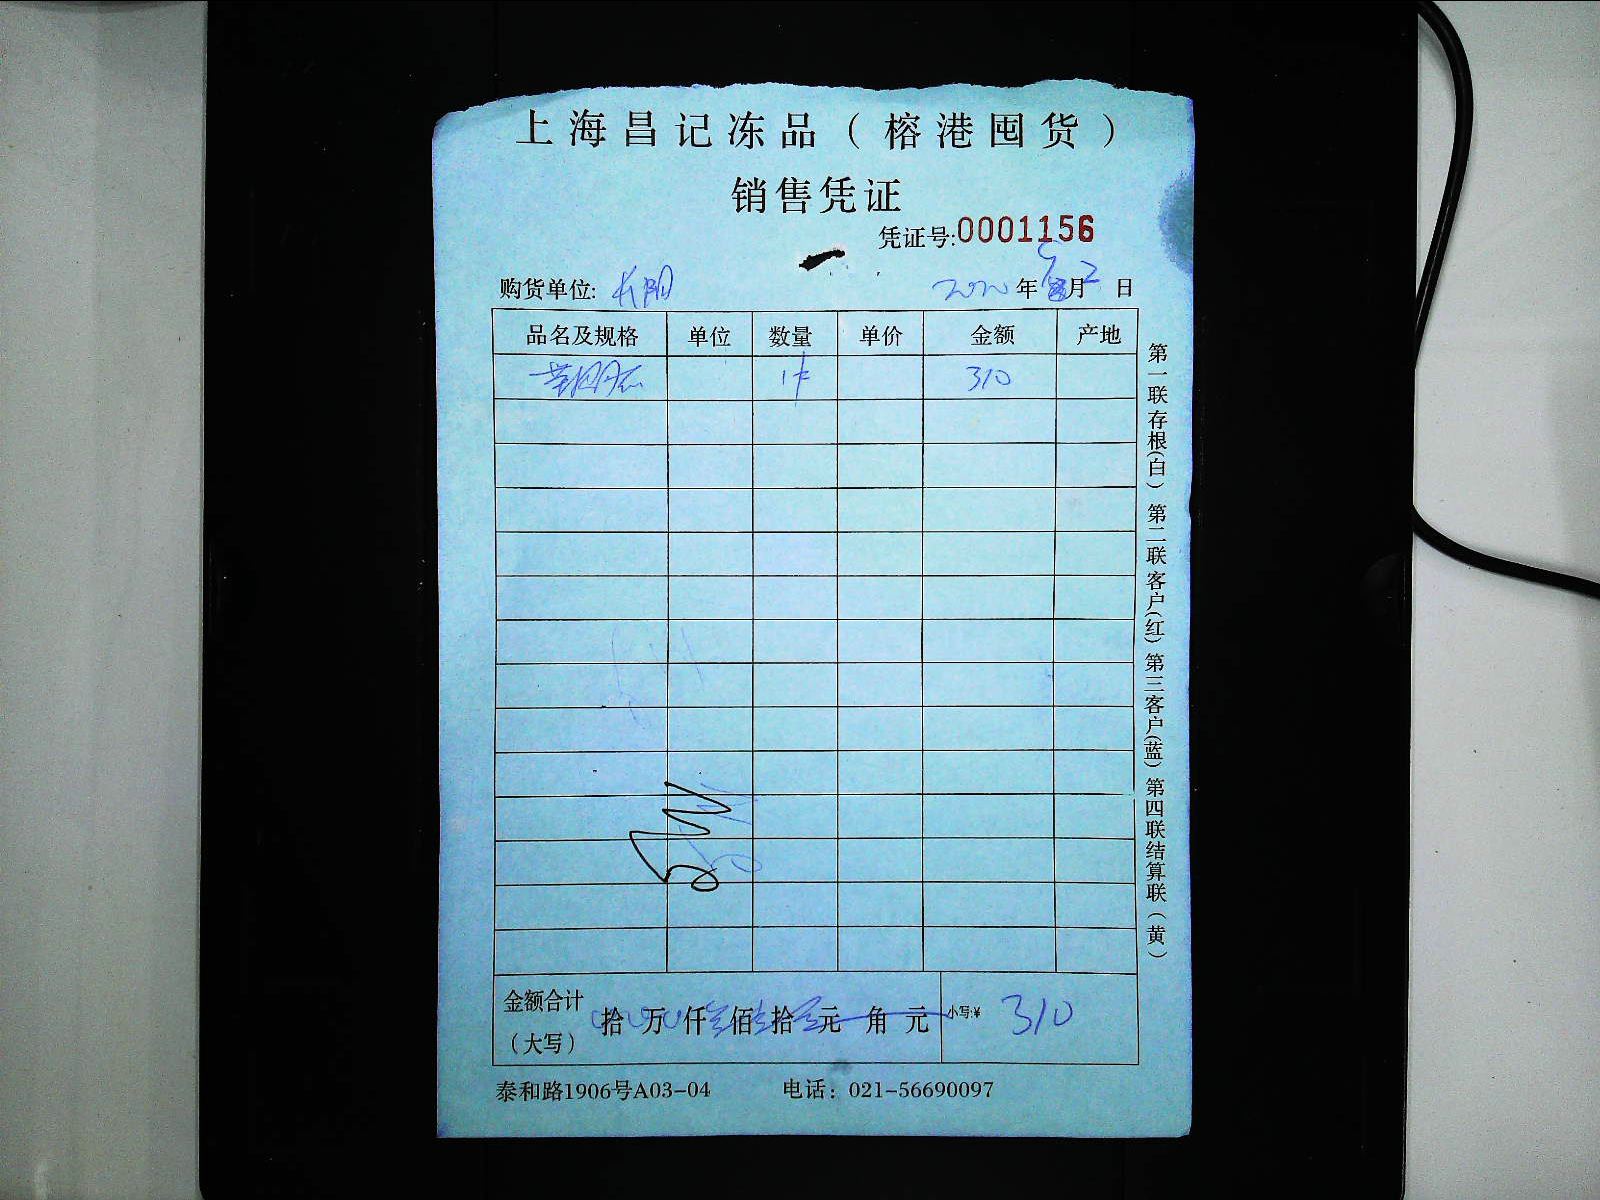 上海昌记冻品（榕港囤货）
销售凭证
凭证号:0001156
购货单位: 长阳 2020年 月2日
品名及规格 单位 数量 单价 金额 产地
1件 310
金额合计（大写） 拾 万 仟 佰 拾 元 角 元 小写:¥ 310
泰和路1906号A03-04 电话：021-56690097
第一联存根（白） 第二联客户（红） 第三客户（蓝） 第四联结算联（黄）